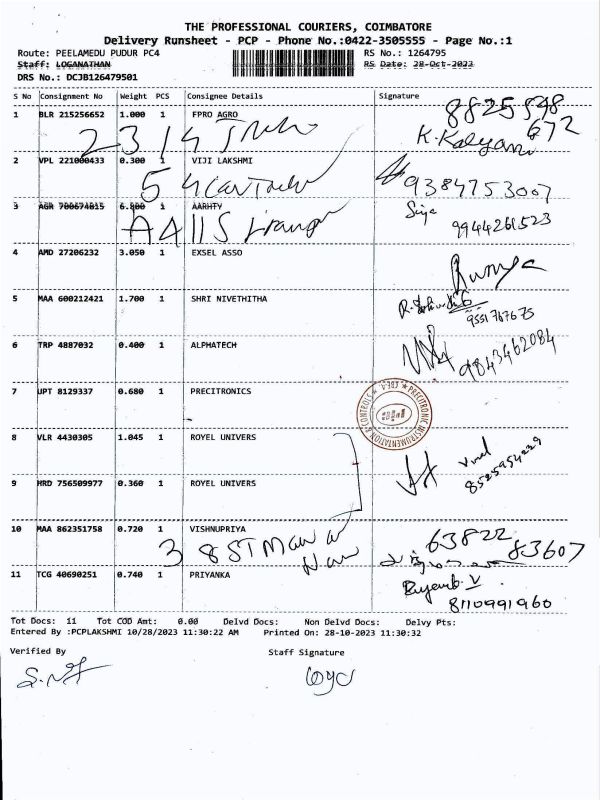 THE PROFESSIONAL COURIERS, COIMBATORE
Delivery Runsheet - PCP - Phone No.:0422-3505555 - Page No.:1
Route: PEELAMEDU PUDUR PC4 RS No.: 1264795
Staff: LOGANATHAN RS Date: 28-Oct-2023
DRS No.: DCJB126479501
S No Consignment No Weight PCS Consignee Details Signature
1 BLR 215256652 1.000 1 FPRO AGRO 8825598
672
23/4 K. Kalyani
2 VPL 221000433 0.300 1 VIJI LAKSHMI
54 9384753007
3 AGR 700674815 6.800 1 AARHTY
A4 115 9944261523
4 AMD 27206232 3.050 1 EXSEL ASSO
5 MAA 600212421 1.700 1 SHRI NIVETHITHA
9551767675
6 TRP 4887032 0.400 1 ALPHATECH 9843462084
7 UPT 8129337 0.680 1 PRECITRONICS
PRECITRONIC INSTRUMENTATION & CONTROLS
8 VLR 4430305 1.045 1 ROYEL UNIVERS
8525954229
9 HRD 756509977 0.360 1 ROYEL UNIVERS
10 MAA 862351758 0.720 1 VISHNUPRIYA 63822 83607
3 8 ST
11 TCG 40690251 0.740 1 PRIYANKA
8110991960
Tot Docs: 11 Tot COD Amt: 0.00 Delvd Docs: Non Delvd Docs: Delvy Pts:
Entered By :PCPLAKSHMI 10/28/2023 11:30:22 AM Printed On: 28-10-2023 11:30:32
Verified By Staff Signature